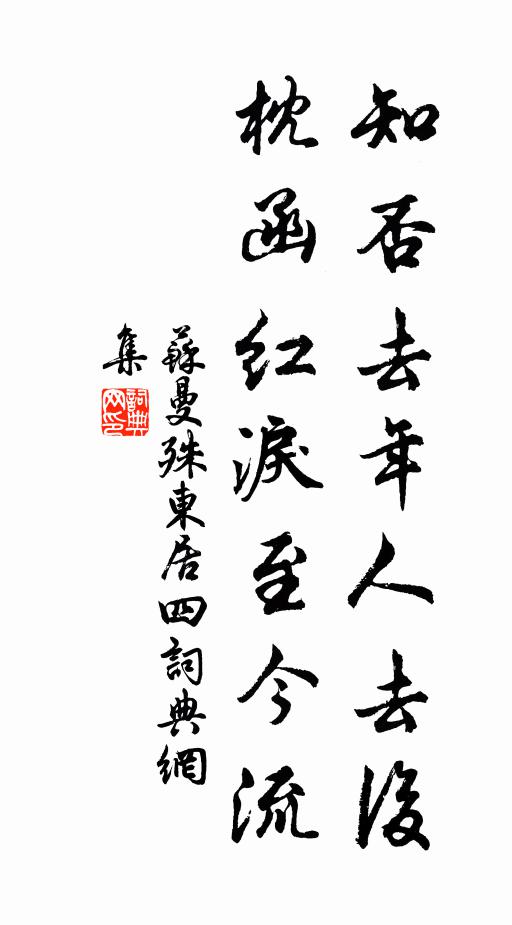 知否去年人去後
枕函紅淚至今流
蘇曼殊東居四詞典網
集
詞典網印